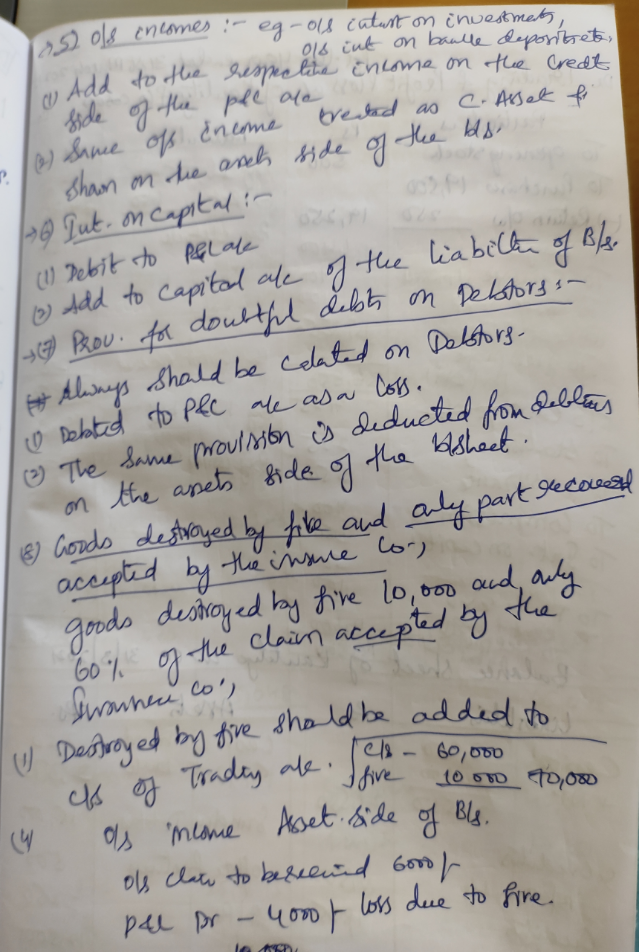 →5) O/s incomes :- eg - o/s interest on investments,
o/s int on bank deposits etc.
(1) Add to the respective income on the credit
side of the p&l a/c
(2) Same o/s income treated as C. Asset &
shown on the assets side of the b/s.
→(6) Int. on capital :-
(1) Debit to P&L a/c
(2) Add to capital a/c of the liabilities of B/s.
→(7) Prov. for doubtful debts on Debtors :-
Always should be calculated on Debtors.
(1) Debited to P&L a/c as a loss.
(2) The same provision is deducted from debtors
on the assets side of the b/sheet.
(8) Goods destroyed by fire and only part received
accepted by the insurance co.,
goods destroyed by fire 10,000 and only
60% of the claim accepted by the
Insurance co.,
(1) Destroyed by fire should be added to
c/s of Trading a/c. c/s - 60,000
fire 10 000 70,000
(4) o/s income Asset side of B/s.
o/s claim to be received 6000/-
P&L Dr - 4000/- loss due to fire.